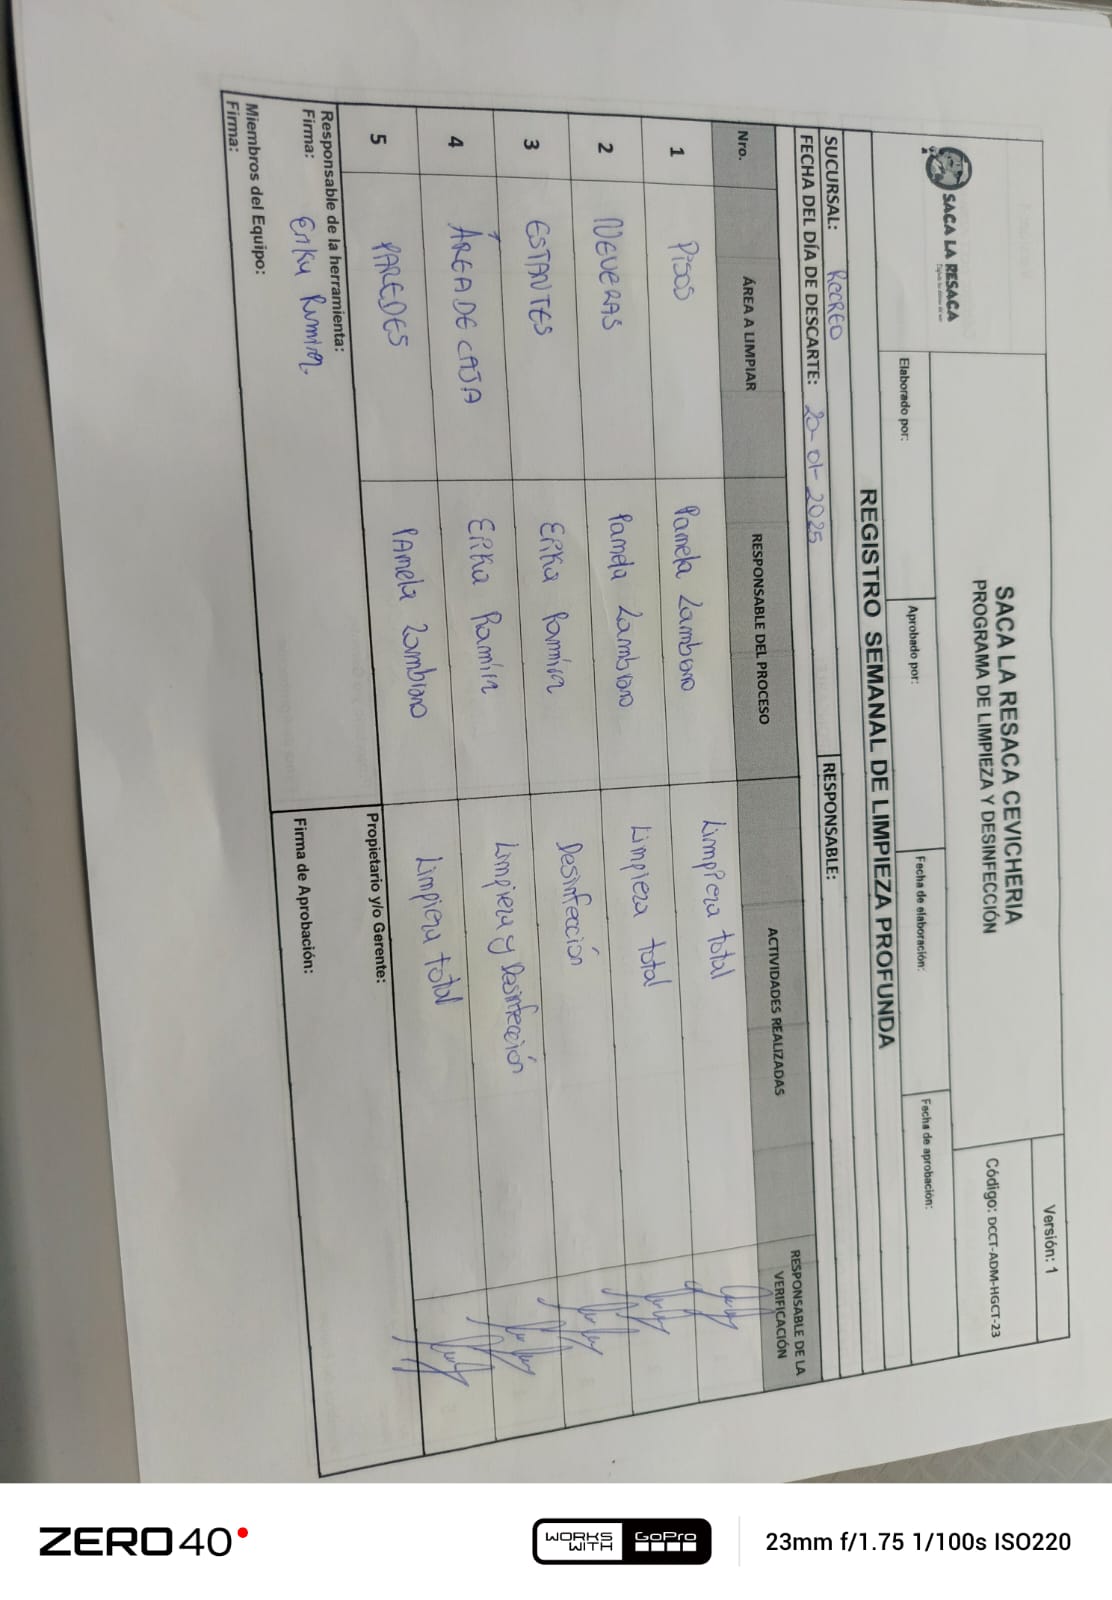 SACA LA RESACA
SACA LA RESACA CEVICHERIA
PROGRAMA DE LIMPIEZA Y DESINFECCIÓN
Versión: 1
Código: DCCT-ADM-HGCT-23
Elaborado por:
Aprobado por:
Fecha de elaboración:
Fecha de aprobación:
REGISTRO SEMANAL DE LIMPIEZA PROFUNDA
SUCURSAL: RecREO
RESPONSABLE:
FECHA DEL DÍA DE DESCARTE: 20-01-2025
Nro. ÁREA A LIMPIAR RESPONSABLE DEL PROCESO ACTIVIDADES REALIZADAS RESPONSABLE DE LA VERIFICACIÓN
1 PISOS Pamela Zambrano Limpieza total
2 NEVERAS Pamela Zambrano Limpieza total
3 ESTANTES Erika Ramírez Desinfección
4 ÁREA DE CAJA Erika Ramírez Limpieza y Desinfección
5 PAREDES PAmela Zambrano Limpieza total
Responsable de la herramienta:
Firma: Erika Ramírez
Propietario y/o Gerente:
Miembros del Equipo:
Firma:
Firma de Aprobación:
ZERO40
WORKS WITH GoPro
23mm f/1.75 1/100s ISO220